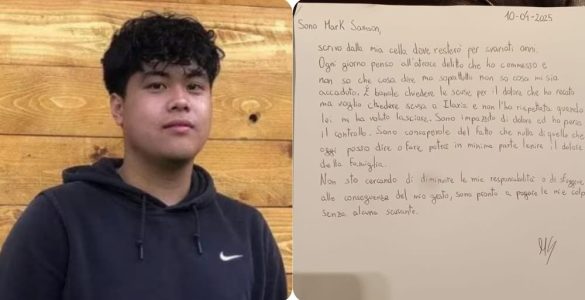 10-04-2025
Sono Mark Samson,
scrivo dalla mia cella dove resterò per svariati anni.
Ogni giorno penso all'atroce delitto che ho commesso e
non so che cosa dire ma soprattutto non so cosa mi sia
accaduto. È banale chiedere le scuse per il dolore che ho recato
ma voglio chiedere scusa a Ilaria e non l'ho rispettata quando
lei mi ha voluto lasciare. Sono impazzito di dolore ed ho perso
il controllo. Sono consapevole del fatto che nulla di quello che
oggi posso dire o fare potrà in minima parte lenire il dolore
della Famiglia.
Non sto cercando di diminuire le mie responsabilità o di sfuggire
alle conseguenze del mio gesto, sono pronto a pagare le mie colpe
senza alcuna scusante.